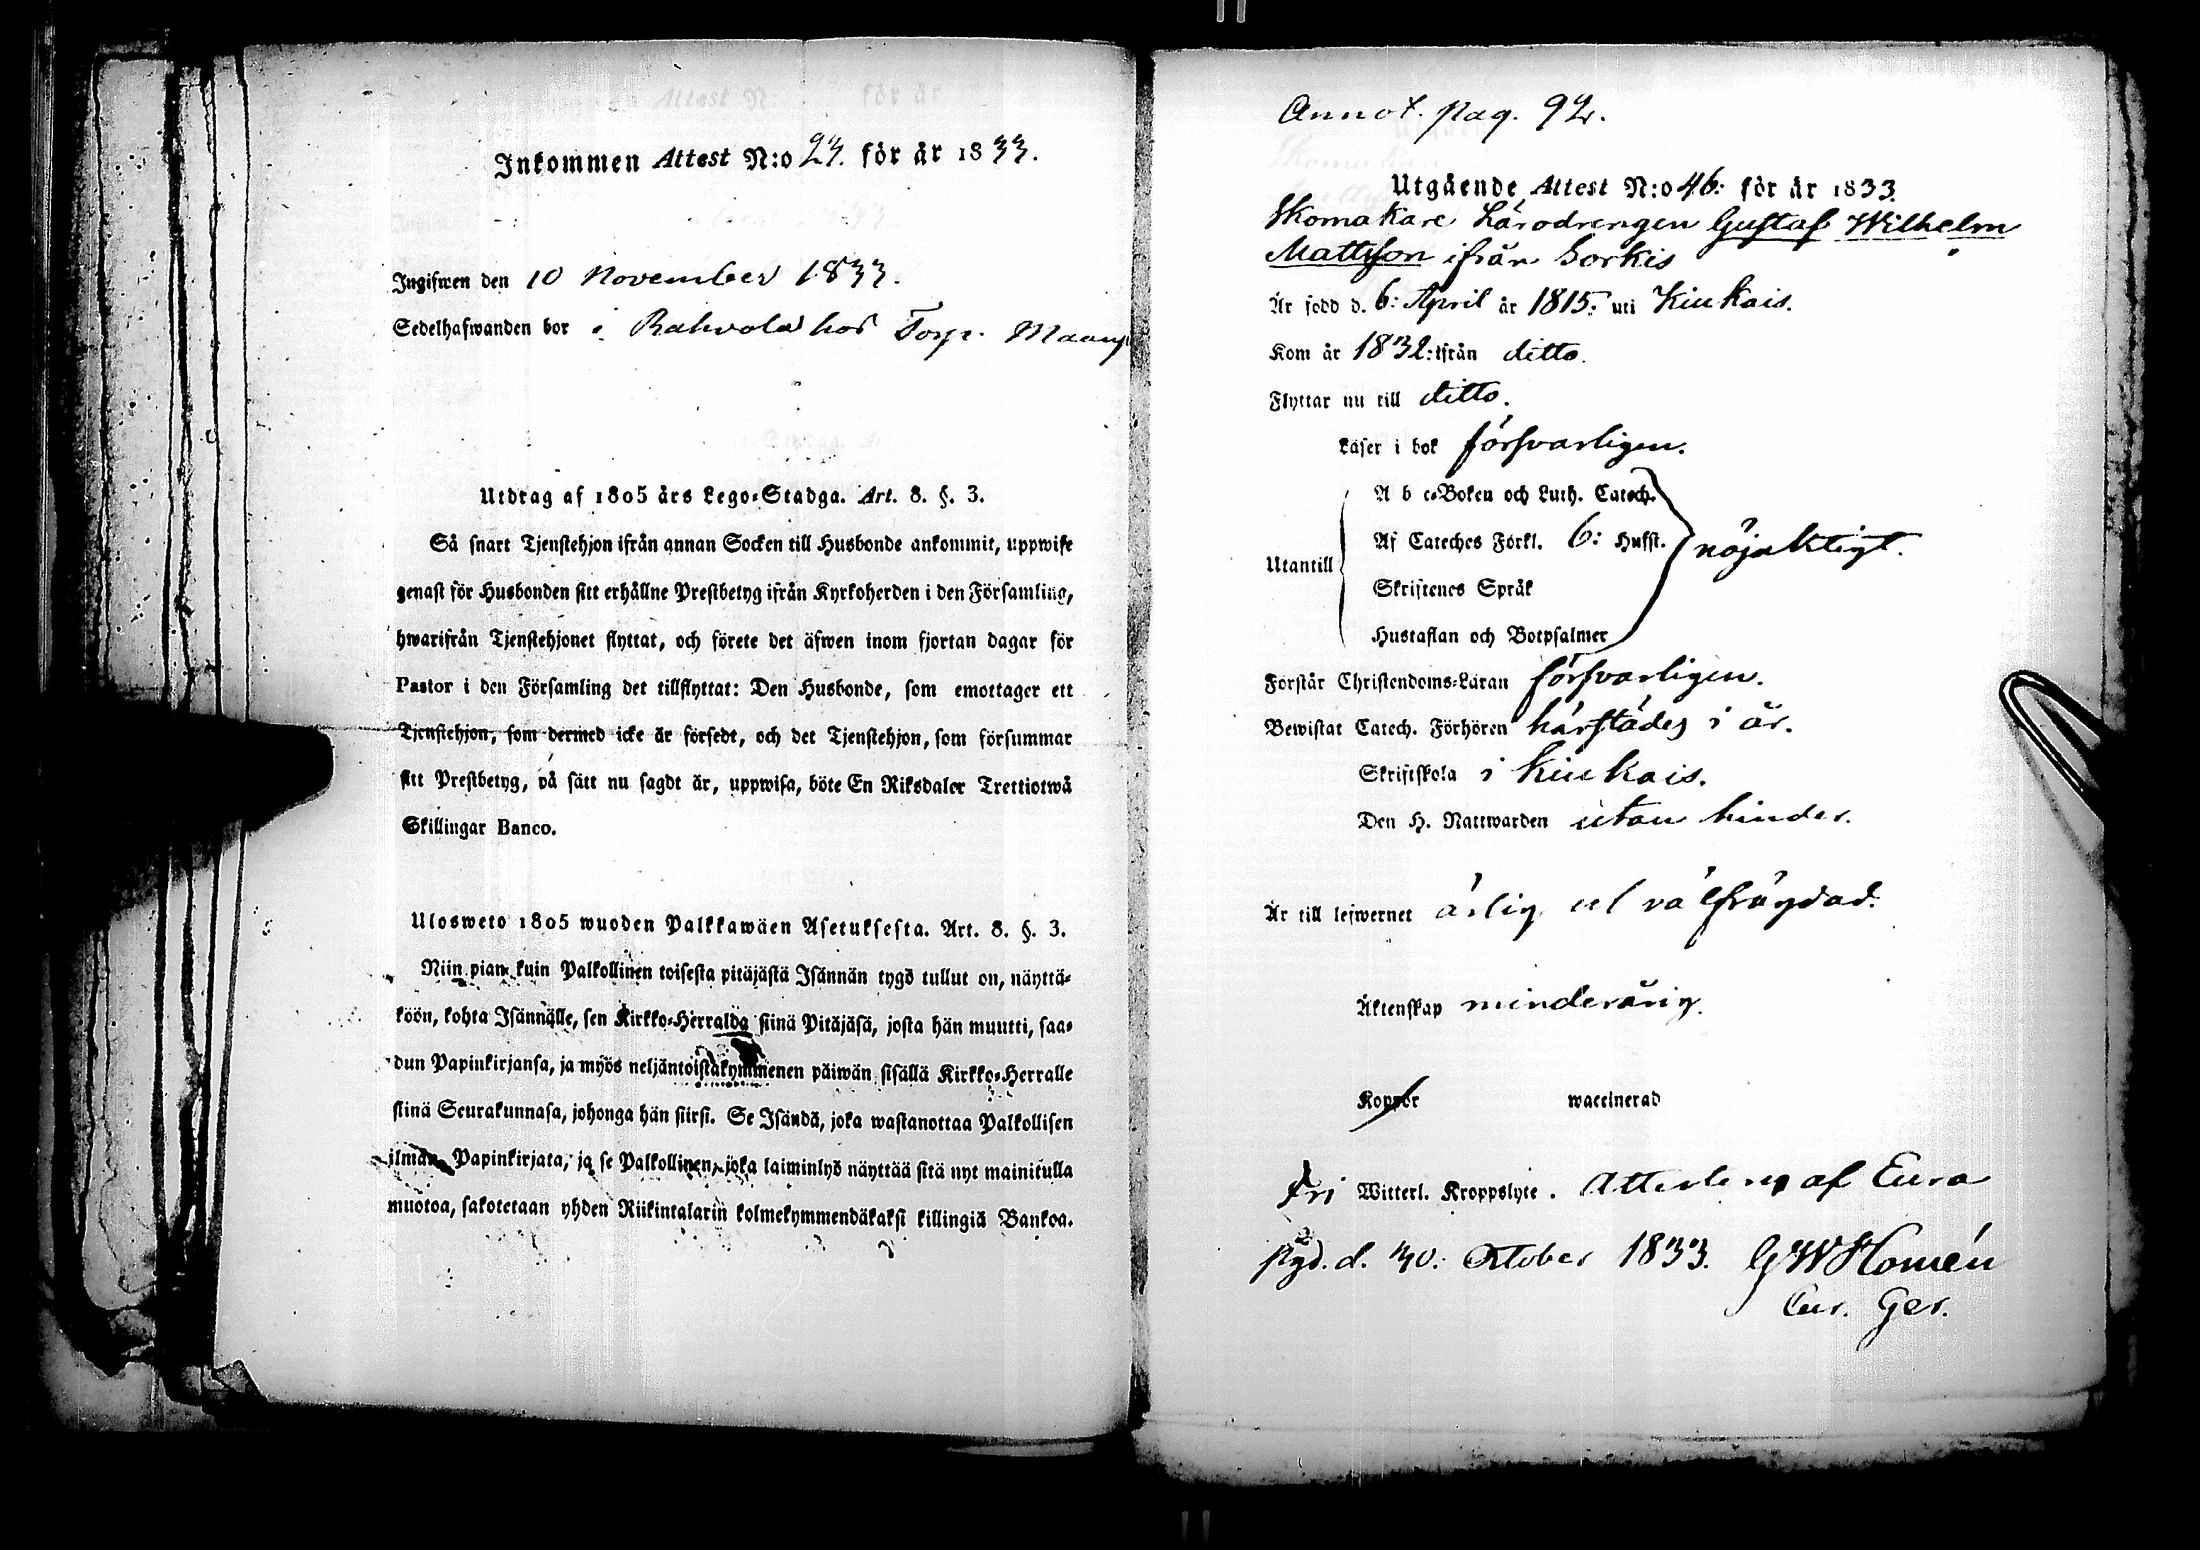 Inkommen Attest N:o 23. för år 1833.
Ingifwen den 10 November 1833.
Sedelhafwanden bor i Rahvola hos Torp.
Utdrag af 1805 års Lego-Stadga. Art. 8. §. 3.
Så snart Tjenstehjon ifrån annan Socken till Husbonde ankommit, uppwise
genast för Husbonden sitt erhållne Prestbetyg ifrån Kyrkoherden i den Församling,
hwarifrån Tjenstehjonet flyttat, och förete det äfwen inom fjortan dagar för
Pastor i den Församling det tillflyttat: Den Husbonde, som emottager ett
Tjenstehjon, som dermed icke är försedt, och det Tjenstehjon, som försummar
sitt Prestbetyg, på sätt nu sagdt är, uppwisa, böte En Riksdaler Trettiotwå
Skillingar Banco.
Ulosweto 1805 wuoden Palkkawäen Asetuksesta. Art. 8. §. 3.
Niin pian kuin Palkollinen toisesta pitäjästä Isännän tygö tullut on, näyttä-
köön, kohta Isännälle, sen Kirkko-Herralda siinä Pitäjäsä, josta hän muutti, saa-
dun Papinkirjansa, ja myös neljäntoistakymmenen päiwän sisällä Kirkko-Herralle
siinä Seurakunnasa, johonga hän siirsi. Se Isändä, joka wastanottaa Palkollisen
ilman Papinkirjata, ja se Palkollinen, joka laiminlyö näyttää sitä nyt mainitulla
muotoa, sakotetaan yhden Riikintalarin kolmekymmendäkaksi killingiä Bankoa.
Annot. pag. 92.
Utgående Attest N:o 46: för år 1833.
Skomakare Lärodrengen Gustaf Wilhelm
Mattsson ifrån Sorkis
Är född d. 6: April år 1815: uti Kiukais.
Kom år 1832: ifrån ditto.
Flyttar nu till ditto.
Läser i bok försvarligen.
A b c-Boken och Luth. Catech.
Utantill Af Cateches Förkl. 6: Hufst. nöjaktigt.
Skriftenes Språk
Hustaflan och Botpsalmer
Förstår Christendoms-Läran försvarligen.
Bewistat Catech. Förhören härstädes i år.
Skriftskola i Kiukais.
Den H. Nattwarden utan hinder.
Är till lefwernet ärlig och välfrägdad.
Äktenskap minderårig.
Koppor waccinerad
Fri Witterl. Kroppslyte. Attesteras af Eura
Pgd. d. 30: October 1833. G W Homén
Cur. Ger.